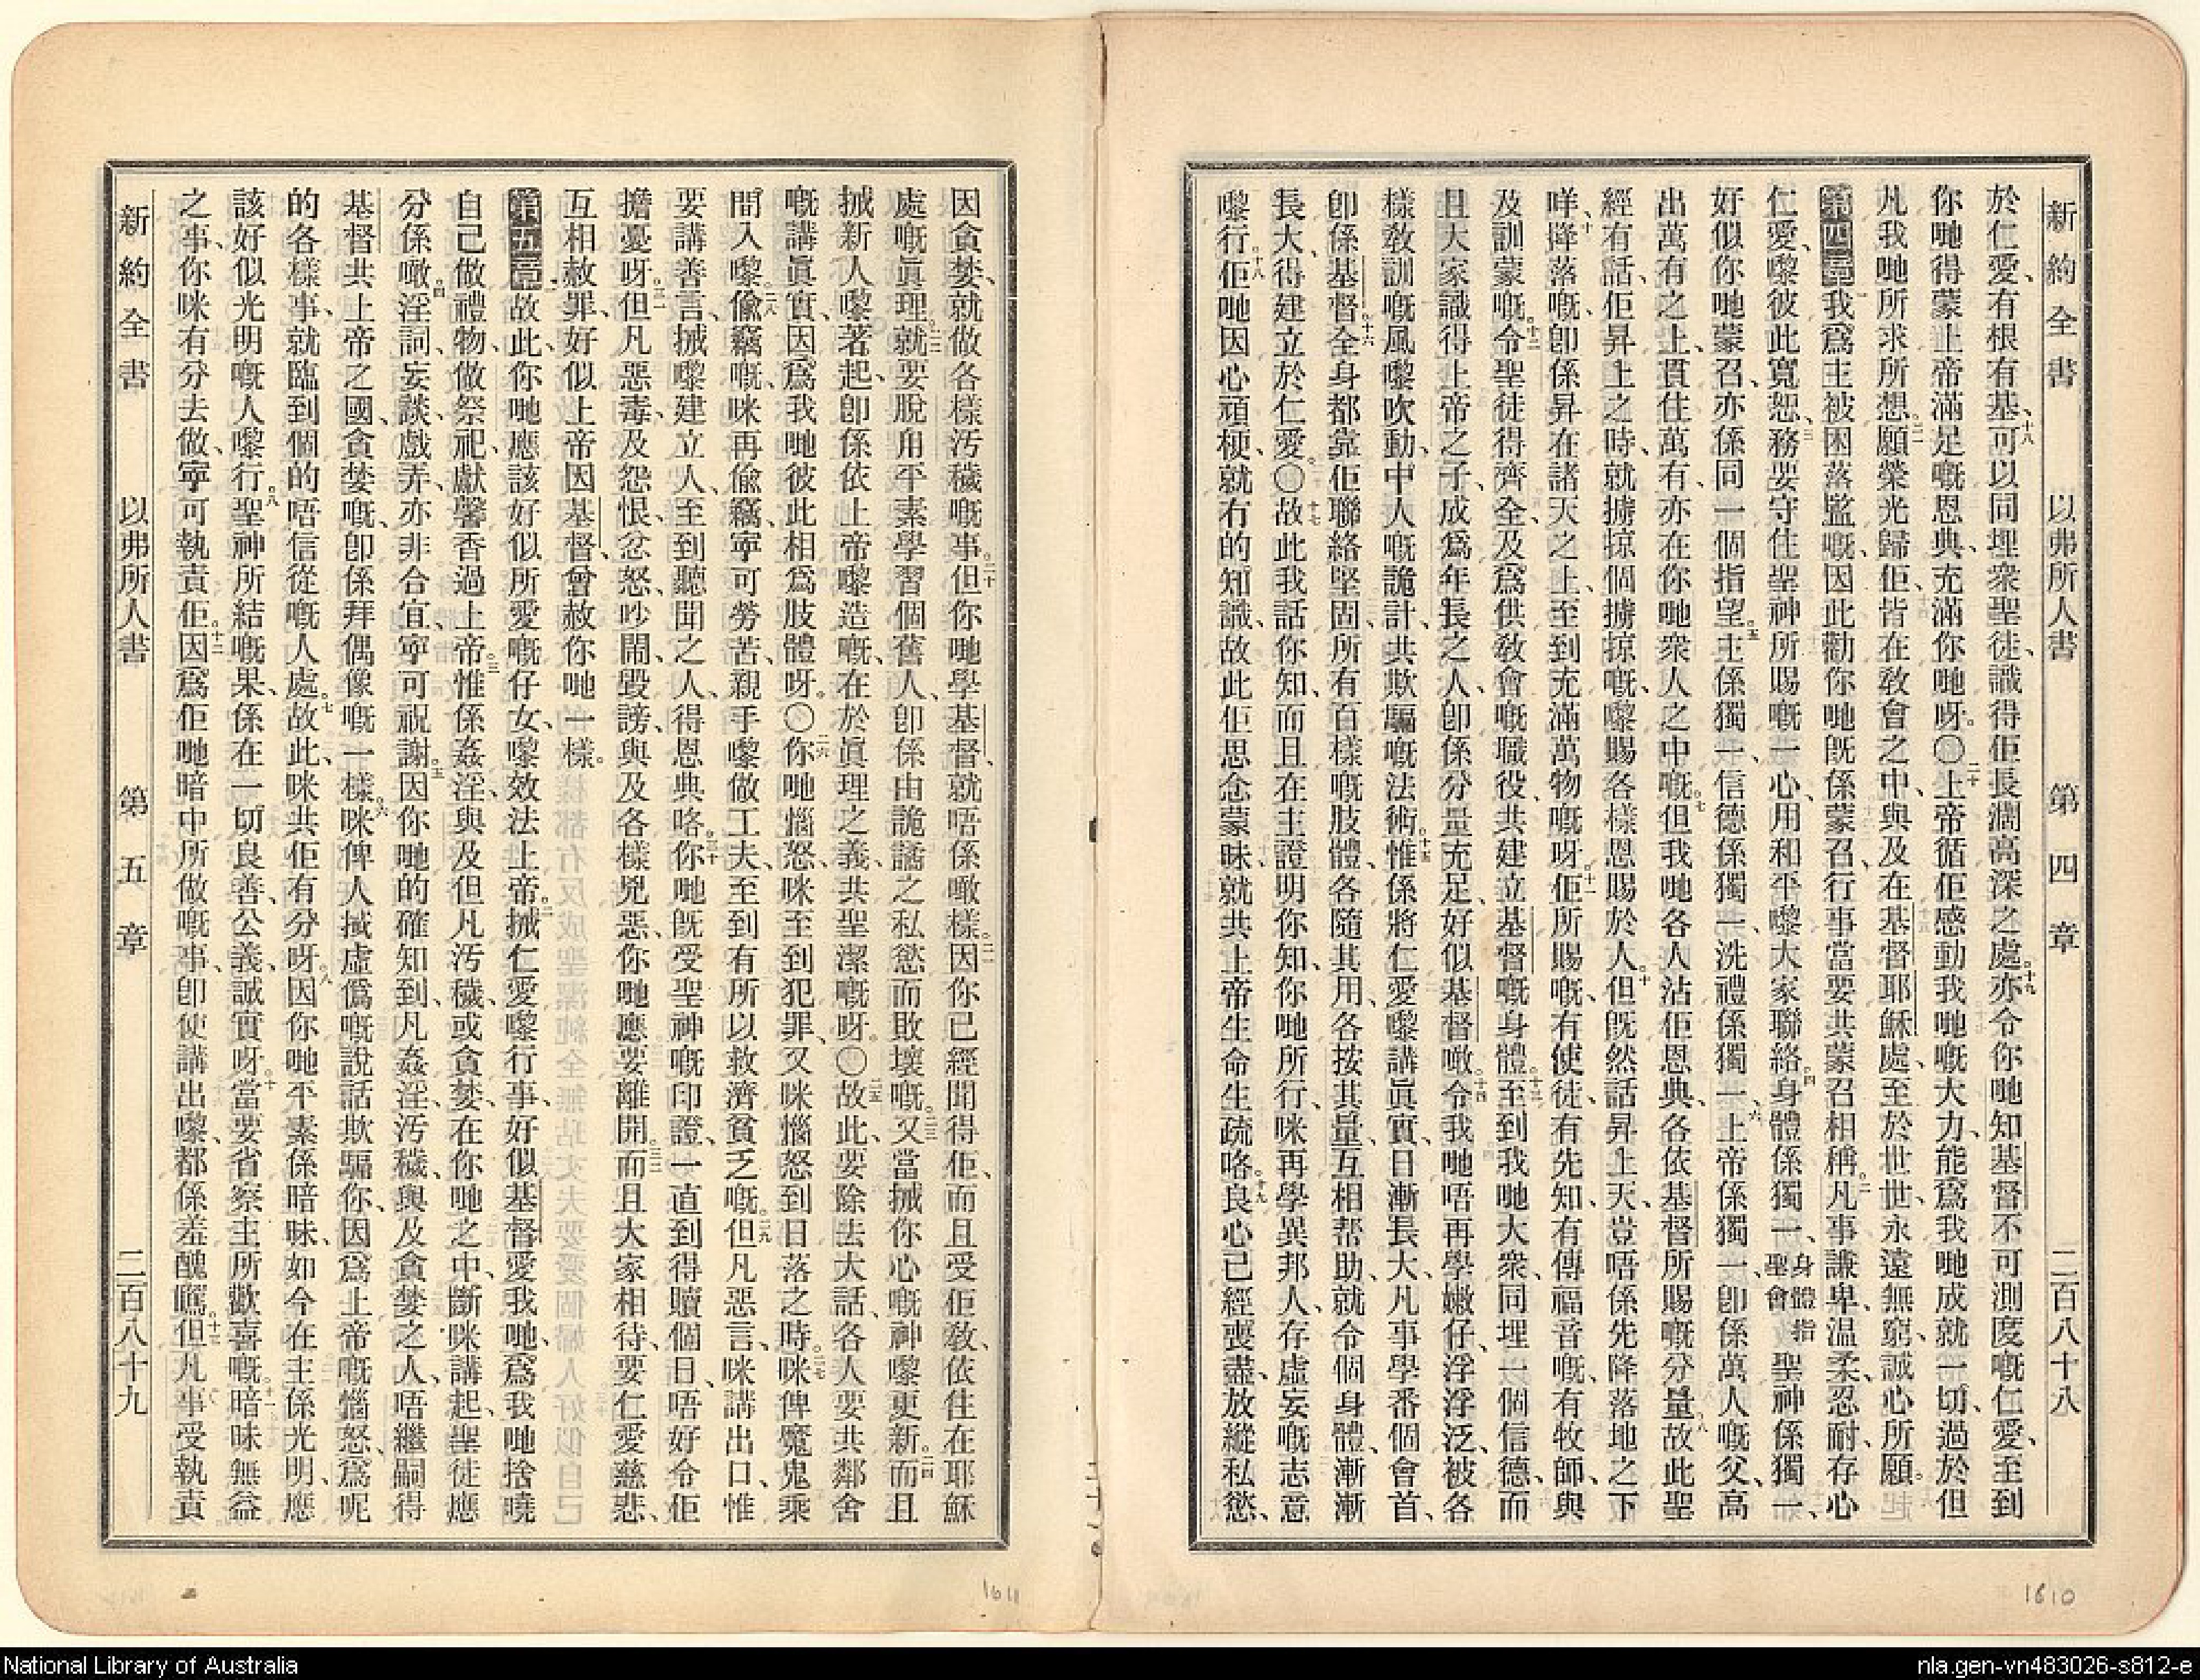 新約全書　以弗所人書　第四章　二百八十八
於仁愛、有根有基、十八可以同埋衆聖徒、識得佢長濶高深之處。十九亦令你哋知基督不可測度嘅仁愛、至到
你哋得蒙上帝滿足嘅恩典、充滿你哋呀。〇二十上帝循佢感動我哋嘅大力、能爲我哋成就一切、過於但
凡我哋所求所想。二一願榮光歸佢、皆在敎會之中、與及在基督耶穌處、至於世世、永遠無窮、誠心所願。
第四章一我爲主被困落監嘅、因此勸你哋旣係蒙召、行事當要共蒙召相稱。二凡事謙卑、温柔、忍耐、存心
仁愛、嚟彼此寬恕、三務要守住聖神所賜嘅一心、用和平嚟大家聯絡。四身體係獨一、身體指聖會聖神係獨一、
好似你哋蒙召、亦係同一個指望。五主係獨一、信德係獨一、洗禮係獨一、六上帝係獨一、卽係萬人嘅父、高
出萬有之上、貫住萬有、亦在你哋衆人之中嘅。七但我哋各人沾佢恩典、各依基督所賜嘅分量。八故此聖
經有話、佢昇上之時、就擄掠個擄掠嘅、嚟賜各樣恩賜於人。九但旣然話昇上天、豈唔係先降落地之下
咩、十降落嘅、卽係昇在諸天之上、至到充滿萬物嘅呀。十一佢所賜嘅、有使徒、有先知、有傳福音嘅、有牧師、與
及訓蒙嘅。十二令聖徒得齊全、及爲供敎會嘅職役、共建立基督嘅身體。十三至到我哋大衆、同埋一個信德、而
且大家識得上帝之子、成爲年長之人、卽係分量充足、好似基督噉。十四令我哋唔再學嫩仔、浮浮泛泛、被各
樣敎訓嘅風嚟吹動、中人嘅詭計、共欺騙嘅法術。十五惟係將仁愛嚟講眞實、日漸長大、凡事學番個會首、
卽係基督。十六全身都靠佢聯絡堅固、所有百樣嘅肢體、各隨其用、各按其量、互相帮助、就令個身體、漸漸
長大、得建立於仁愛。〇十七故此我話你知、而且在主證明你知、你哋所行、咪再學異邦人、存虛妄嘅志意
嚟行。十八佢哋因心頑梗、就冇的知識、故此佢思念蒙昧、就共上帝生命生疏咯。十九良心已經喪盡、放縱私慾、
因貪婪、就做各樣汚穢嘅事。二十但你哋學基督、就唔係噉樣。二一因你已經聞得佢、而且受佢敎、依住在耶穌
處嘅眞理。二二就要脫甪平素學習個舊人、卽係由詭譎之私慾而敗壞嘅。二三又當搣你心嘅神嚟更新。二四而且
搣新人嚟著起、卽係依上帝嚟造嘅、在於眞理之義、共聖潔嘅呀。〇二五故此、要除去大話、各人要共鄰舍
嘅講眞實、因爲我哋彼此相爲肢體呀。〇二六你哋惱怒、咪至到犯罪、又咪惱怒到日落之時。二七咪俾魔鬼乘
間入嚟。二八偸竊嘅、咪再偸竊、寧可勞苦、親手嚟做工夫、至到有所以救濟貧乏嘅。二九但凡惡言、咪講出口、惟
要講善言、搣嚟建立人、至到聽聞之人、得恩典咯。三十你哋旣受聖神嘅印證、一直到得贖個日、唔好令佢
擔憂呀。三一但凡惡毒、及怨恨、忿怒、吵鬧、毀謗、與及各樣兇惡、你哋應要離開。三二而且大家相待、要仁愛慈悲、
互相赦罪、好似上帝因基督、曾赦你哋一樣。
第五章一故此、你哋應該好似所愛嘅仔女、嚟效法上帝。二搣仁愛嚟行事、好似基督愛我哋、爲我哋捨曉
自己、做禮物、做祭祀、獻馨香過上帝。三惟係姦淫、與及但凡汚穢、或貪婪、在你哋之中、斷咪講起、聖徒應
分係噉。四淫詞、妄談、戲弄、亦非合宜、寧可祝謝。五因你哋的確知到、凡姦淫、汚穢、與及貪婪之人、唔繼嗣得
基督共上帝之國、貪婪嘅、卽係拜偶像嘅一樣。六咪俾人搣虛僞嘅說話欺騙你、因爲上帝嘅惱怒、爲呢
的各樣事、就臨到個的唔信從嘅人處。七故此、咪共佢有分呀。八因你哋平素係暗昧、如今在主係光明、應
該好似光明嘅人嚟行。九聖神所結嘅果、係在一切良善、公義、誠實呀。十當要省察主所歡喜嘅。十一暗昧無益
之事、你咪有分去做、寧可執責佢。十二因爲佢哋暗中所做嘅事、卽使講出嚟、都係羞醜嚹。十三但凡事受執責
新約全書　以弗所人書　第五章　二百八十九
1611
1610
National Library of Australia
nla.gen-vn483026-s812-e